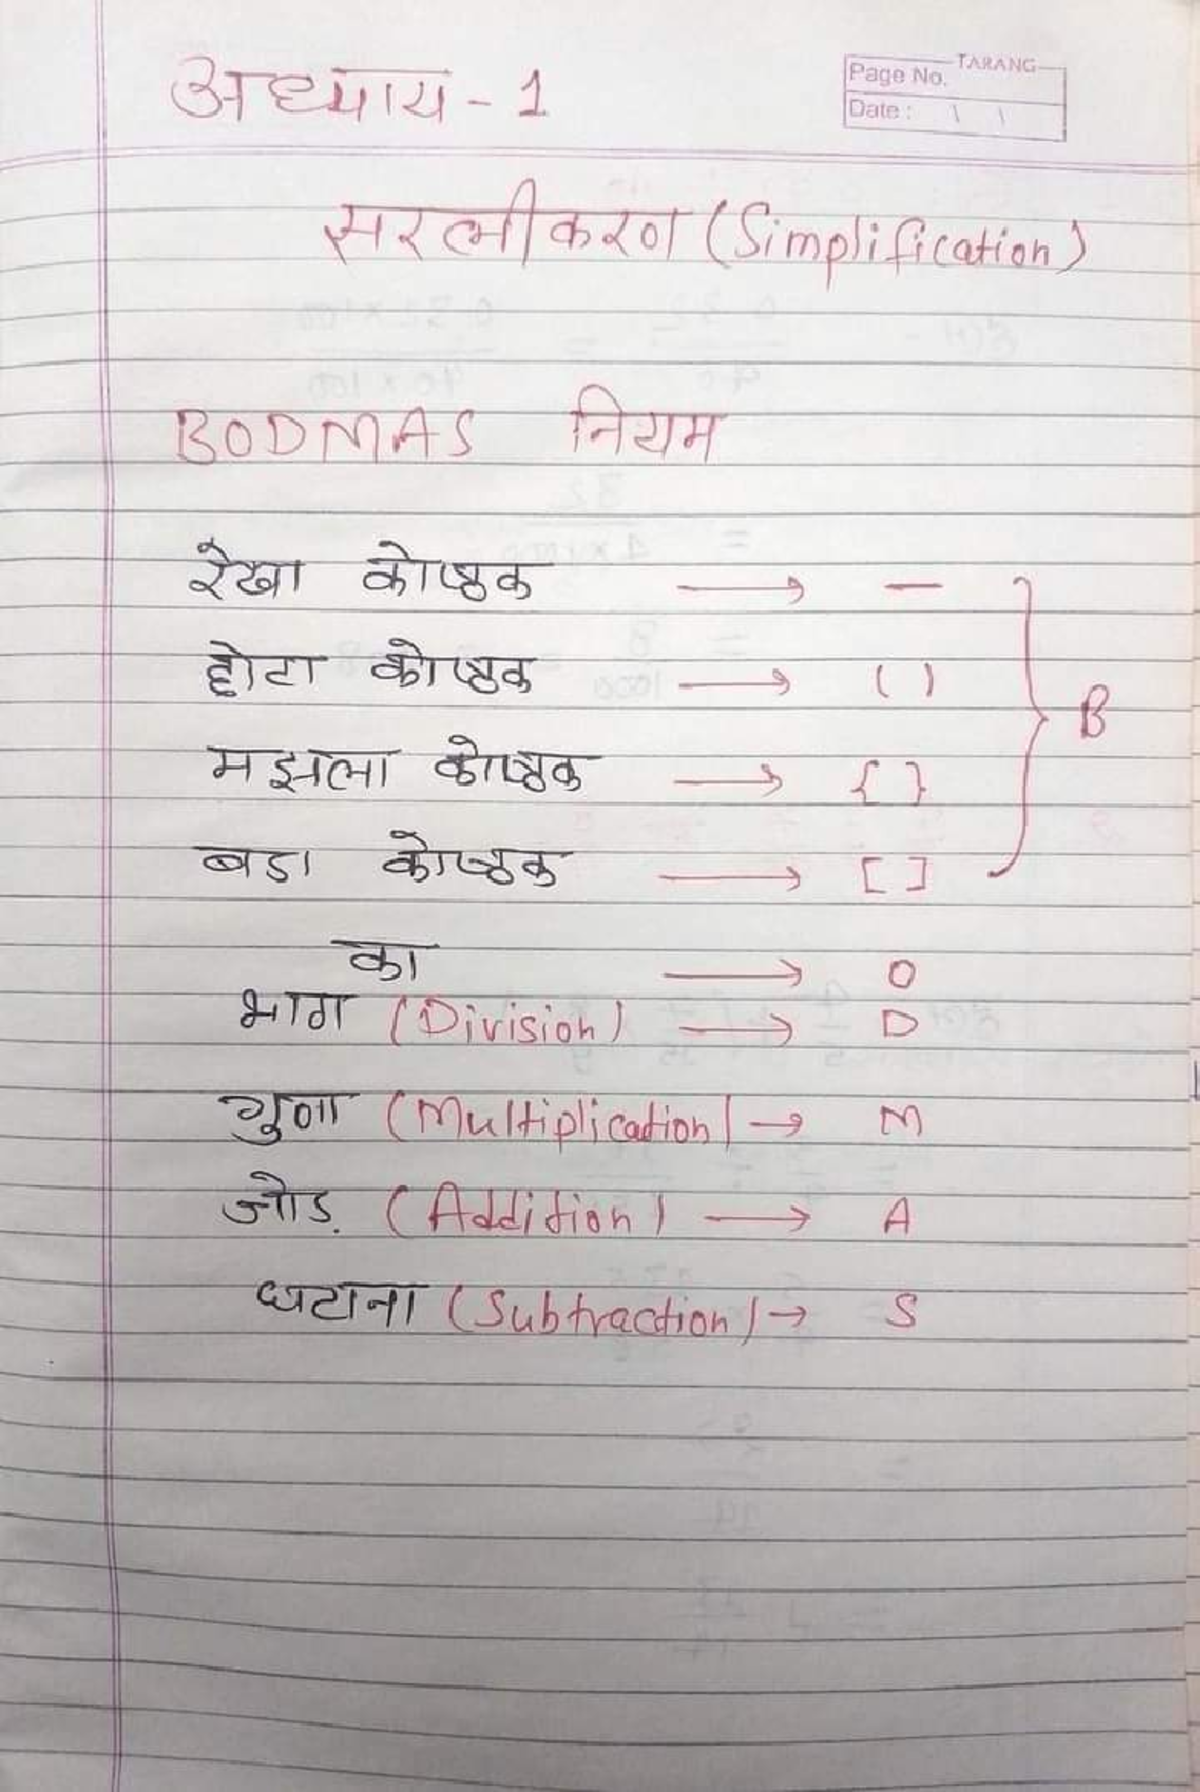 अध्याय - 1
TARANG
Page No.
Date :
सरलीकरण (Simplification)
BODMAS नियम
रेखा कोष्ठक → —
छोटा कोष्ठक → ( )
मझला कोष्ठक → { }
B
बडा कोष्ठक → [ ]
का → O
भाग (Division) → D
गुणा (Multiplication) → M
जोड़ (Addition) → A
घटाना (Subtraction) → S